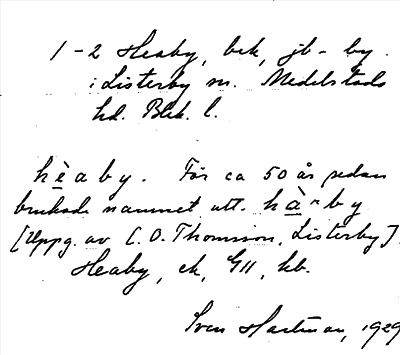 1-2 Heaby, bek, jb- by.
i Listerby sn. Medelstads
hd. Blek. l.
hèaby. För ca 50 år sedan
brukade namnet utt. hà"by
[Uppg. av C. O. Thomsson, Listerby].
Heaby, ek, GH, hb.
Sven Hartman, 1929